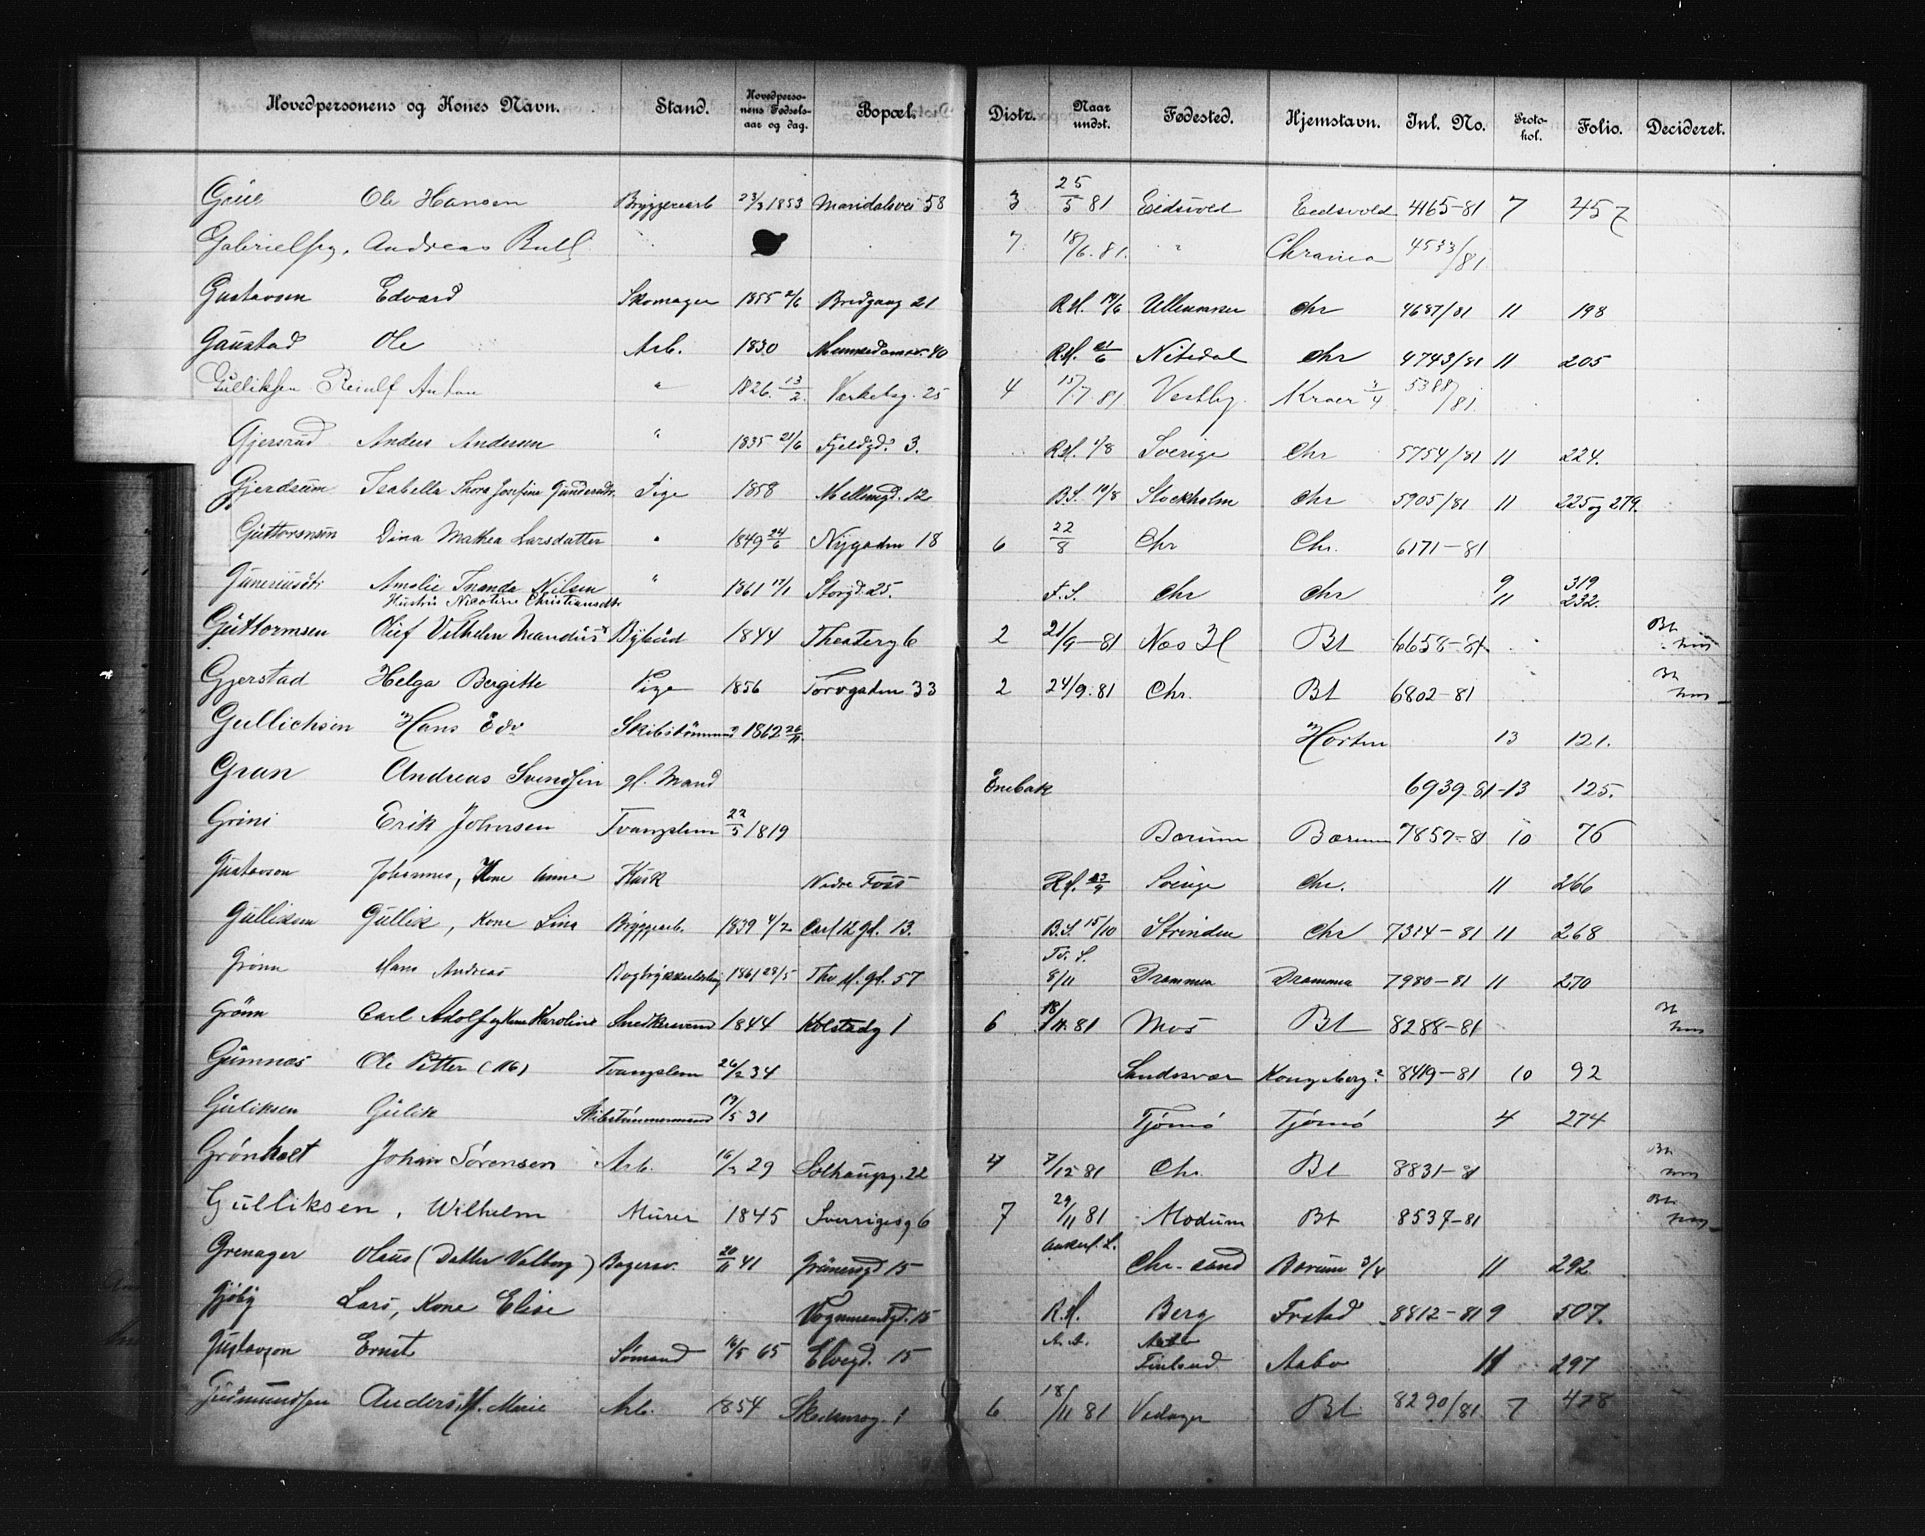 Hovedpersonens og Kones Navn. Stand. Hovedpersonens Fødselsaar og dag. Bopæl. Distr. Naar undst. Fødested. Hjemstavn. Inl. No. Protokol. Folio. Decideret.
Ole Hansen Bryggeriarb 23/3 1853 Maridalsvei 58 3 25/5 81 Eidsvold Eidsvold 4165-81 7 457
Gabrielsen, Andreas Bull 7 18/6. 81. " Chrania 4533/81.
Gustavsen Edvard Skomager 1855 2/6 Bredgang 21 R.H. 14/6 Ullensaker Chr 4687/81 11 198
Gaustad Ole Arb. 1830 Munkedamsv. 40 R.H. 21/6 Nitedal Chr 4743/81 11 205
Gulliksen Anton " 1826. 13/2 Værkstsg. 25 4 15/7. 81 Vestby. Kroer 3/4 5388/81.
Gjersrud Anders Andersen " 1835 21/6 Fjeldgd. 3. R.H. 1/8 Sverige Chr 5754/81 11 224.
Gjerdrum Isabella Thora Josefine Gundersdtr. Pige 1858 Mellemgd. 12 B.S. 10/8 Stockholm Chr 5905/81 11 225 og 279.
Guttormsen Dina Mathea Larsdatter " 1849 24/6 Nygaden 18 6 22/8 Chr Chr. 6171-81
Amalie Nilsen " 1861 17/1 Storgd. 25. F.S. Chr Chr 9 319
Hustru Nicoline Christiansdtr 11 232.
Guttormsen Olef Vilhelm Mandius Bybud 1844 Theaterg 6 2 21/9-81 Næs H Bt 6658-81 Bt
Gjerstad Helga Bergitte Pige 1856 Torvgaden 33 2 24/9. 81 Chr. Bt 6802-81 Bt
Gullichsen Hans Edv Skibstømmmd 1862 26/11. Horten 13 121.
Gran Andreas Svendsen gl. Mand Enebak 6939-81-13 125.
Grini Erik Johnsen Tvangslem 22/5 1819 Bærum Bærum 7857-81 10 76
Gustavson Johannes, Kone Anne Kusk Nedre Foss R.H. 23/9 Sverige Chr. 11 266
Gulliksen Gullik, Kone Lina Bryggearb. 1839 4/2 Carl 12 gd. 13. B.S. 15/10 Strinden Chr 7314-81 11 268
Grønn Hans Andreas 1861 28/5 Thv M. gd. 57 8/11 Drammen Drammen 7980-81 11 270
Grönn Carl Adolf og Kone Karoline Snedkersvend 1844 Kolstadg 1 6 18/11. 81 Mos Bt 8288-81 Bt
Gumnæs Ole Petter (116) Tvangslem 26/2 34 Sandsvær Kongsberg? 8419-81 10 92
Guliksen Gulik Skibstømmermand 19/5 31 Tjømø Tjømø 4 274
Grönholt Johan Sörensen Arb. 16/2 29 Solhaugg. 22 4 7/12 81 Chr. Bt 8831-81 Bt
Gulliksen, Wilhelm Murer 1845 Sverrigesg 6 7 29/11 81 Modum Bt 8537-81 Bt
Grenager Olaus (Datter Valborg) Bagersv. 20/11 41 Grünersgd 15 Chr-sand Bærum 3/4 11 292.
Gjøby Lars, Kone Elise Vognmandgd. 15 R.H. Berg Frstad 8812-81 9 507.
Gustavson Ernst Sømand 16/5 65 Elvegd. 15 Finland Aabo 11 297
Gudmundsen Anders, H. Marie Arb. 1854 1 6 18/11 81 Bt. 8290/81. 7 478